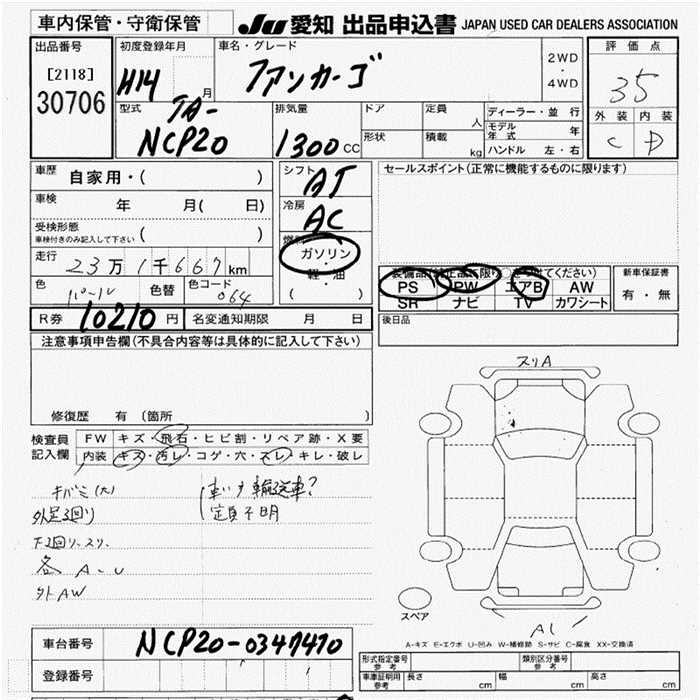 車内保管・守衛保管
JU 愛知 出品申込書 JAPAN USED CAR DEALERS ASSOCIATION
出品番号
[2118]
30706
初度登録年月
H14 月
車名・グレード
ファンカーゴ
2WD
・
4WD
評価点
35
外装 内装
C D
型式
TA-
NCP20
排気量
1300 CC
ドア
形状
定員
人
積載
kg
ディーラー・並行
モデル年式 年
ハンドル 左・右
車歴
自家用・( )
車検 年 月( 日)
受検形態
車検付きのみ記入して下さい ( )
走行
23万1千667km
色
パール
色替
色コード
064
シフト
AT
冷房
AC
ガソリン
・
軽・油
( )
セールスポイント(正常に機能するものに限ります)
PS PW エアB AW
SR ナビ TV カワシート
新車保証書
有・無
R券 10210円
名変通知期限 月 日
後日品
注意事項申告欄(不具合内容等は具体的に記入して下さい)
修復歴 有 (箇所 )
検査員
記入欄
FW キズ・飛石・ヒビ割・リペア跡・X要
内装 キズ・汚レ・コゲ・穴・スレ・キレ・破レ
キバミ(大)
外足廻り
下廻リ・スリ
各 A-U
外AW
車いす輸送車?
定員不明
スリA
スペア
A-キズ E-エクボ U-凹み W-補修跡 S-サビ C-腐食 XX-交換済
車台番号 NCP20-0347470
登録番号
形式指定番号
参考
類別区分番号
参考
車庫証明用
参考
長さ cm
幅 cm
高さ cm